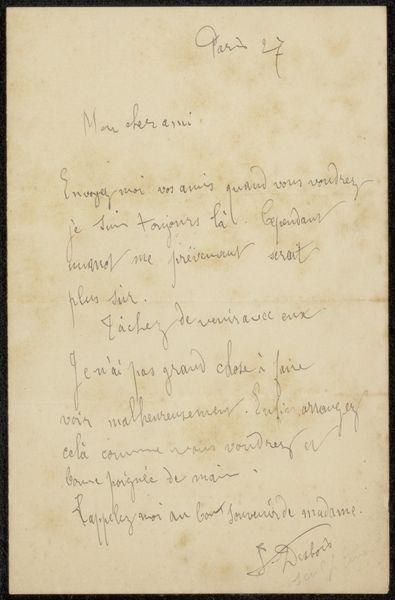 Paris 27
Mon cher ami
Envoyez moi vos amis quand vous voudrez
je suis toujours là. Cependant
un mot me prévenant serait
plus sûr.
Tâchez de venir avec eux
Je n'ai pas grand chose à faire
voir malheureusement. Enfin arrangez
celà comme vous voudrez et
bonne poignée de main.
Rappelez moi au bon souvenir de madame.
J. Desbois